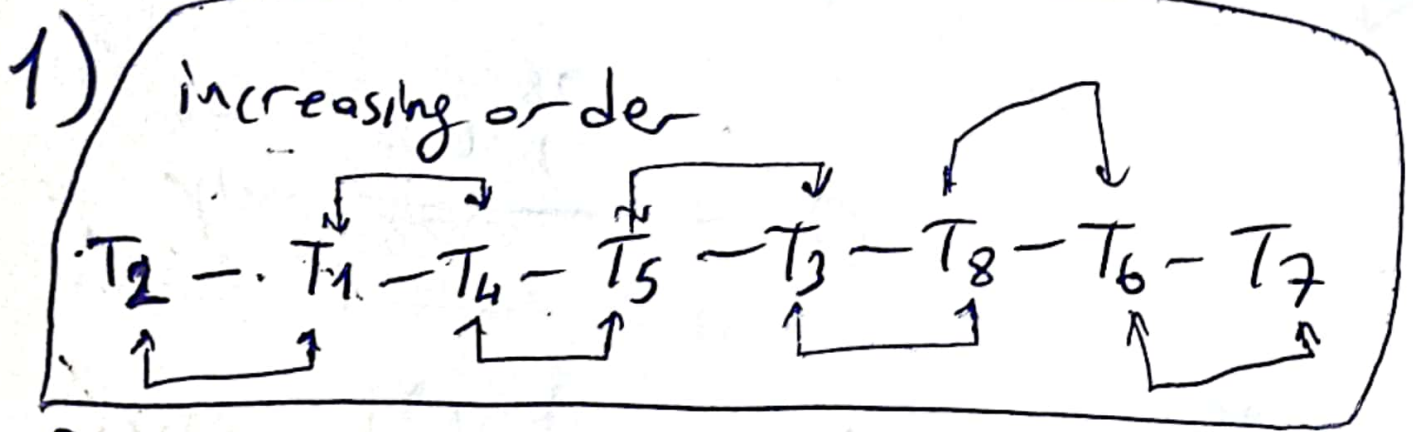 1)
increasing order
T2 - T1 - T4 - T5 - T3 - T8 - T6 - T7